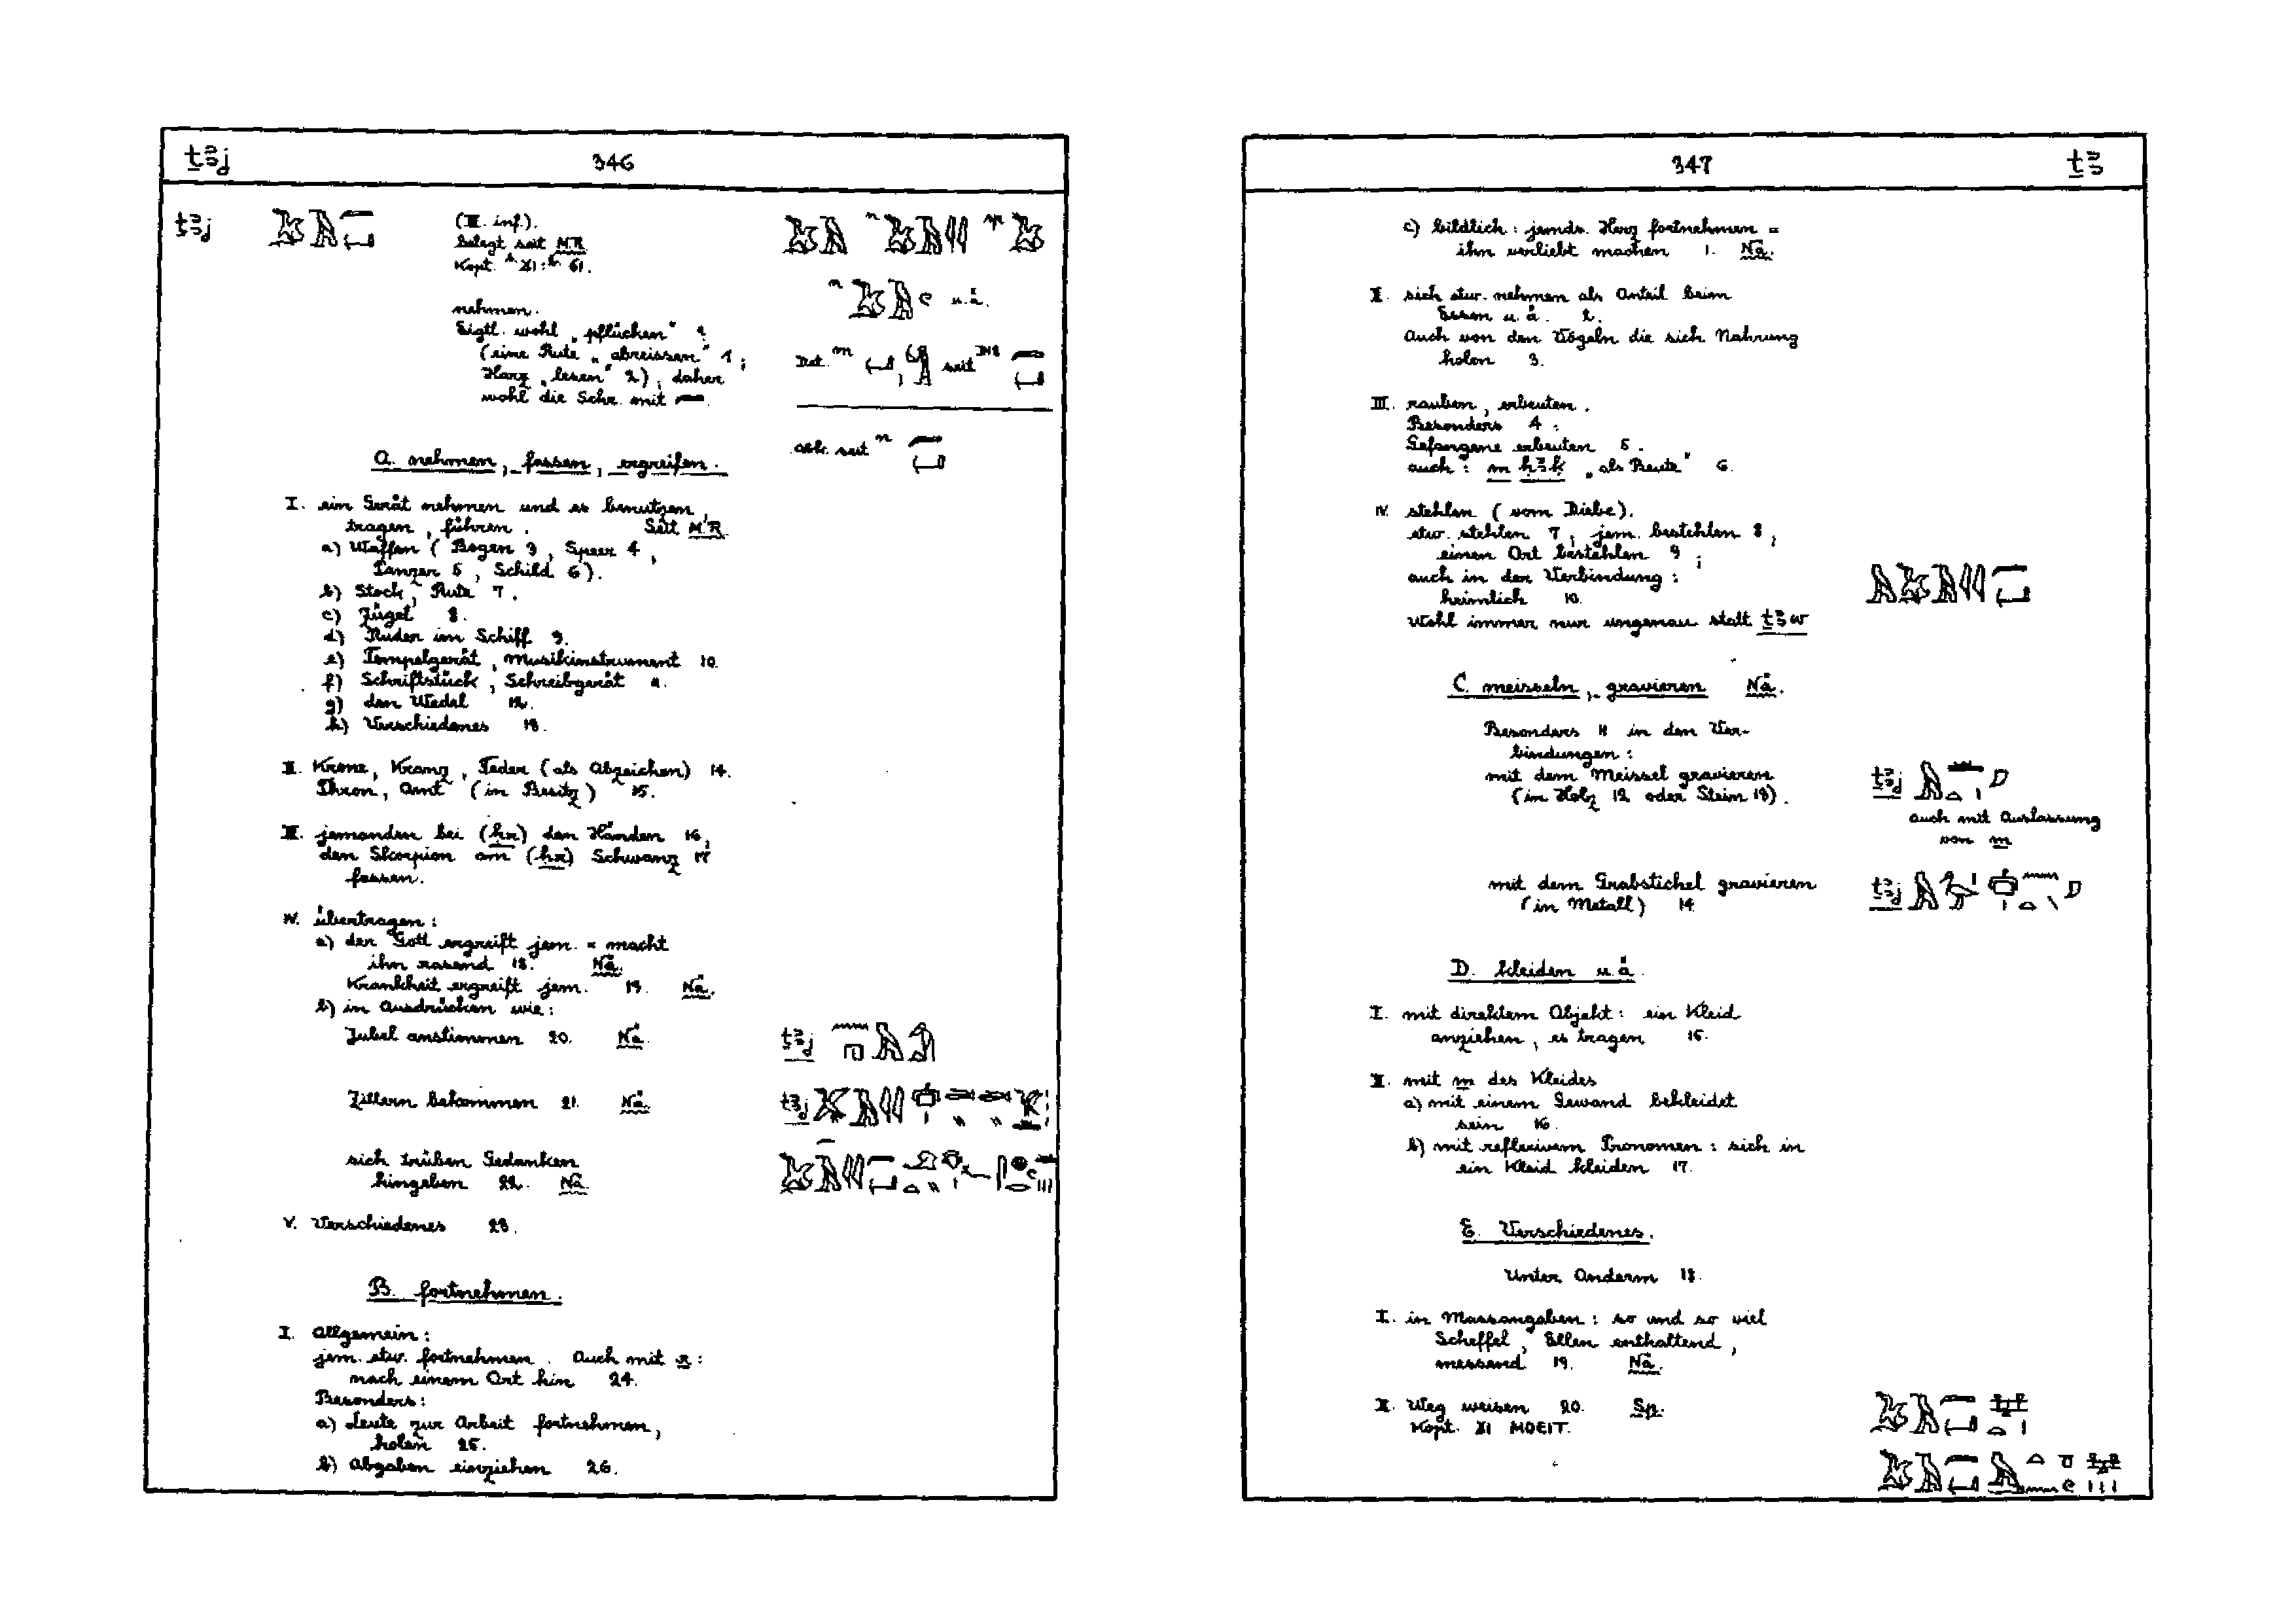 ṯꜣj 346
ṯꜣj
(III. inf).
belegt seit M.R.
Kopt.
nehmen.
Eigtl. wohl „pflücken"
(eine Rute „abreissen" 1;
Harz „lesen" 2), daher
wohl die Schr. mit
Det. seit
Abk. seit
A. nehmen, fassen, ergreifen.
I. ein Gerät nehmen und es benutzen,
tragen, führen. Seit M.R.
a) Waffen (Bogen 3, Speer 4,
Panzer 5, Schild 6).
b) Stock, Rute 7.
c) Zügel 8.
d) Ruder im Schiff 9.
e) Tempelgerät, Musikinstrument 10.
f) Schriftstück, Schreibgerät 11.
g) den Wedel 12.
h) Verschiedenes 13.
II. Krone, Kranz, Feder (als Abzeichen) 14.
Thron, Amt (in Besitz) 15.
III. jemanden bei (ḥr) den Händen 16,
den Skorpion am (ḥr) Schwanz 17
fassen.
IV. übertragen:
a) der Gott ergreift jem. = macht
ihn rasend 18. Nä.
Krankheit ergreift jem. 19. Nä.
b) in Ausdrücken wie:
Jubel anstimmen 20. Nä. ṯꜣj
Zittern bekommen 21. Nä. ṯꜣj
sich trüben Gedanken
hingeben 22. Nä.
V. Verschiedenes 23.
B. fortnehmen.
I. Allgemein:
jem. etw. fortnehmen. Auch mit r:
nach einem Ort hin 24.
Besonders:
a) Leute zur Arbeit fortnehmen,
holen 25.
b) Abgaben einziehen 26.
347 ṯꜣ
c) bildlich: jemds. Herz fortnehmen =
ihn verliebt machen 1. Nä.
II. sich etw. nehmen als Anteil beim
Essen u.ä. 2.
Auch von den Vögeln die sich Nahrung
holen 3.
III. rauben, erbeuten.
Besonders 4:
Gefangene erbeuten 5.
auch: m ḥꜣḳ „als Beute" 6.
IV. stehlen (vom Diebe).
etw. stehlen 7, jem. bestehlen 8,
einen Ort bestehlen 9;
auch in der Verbindung:
heimlich 10.
Wohl immer nur ungenau statt ṯꜣw
C. meisseln, gravieren Nä.
Besonders 11 in den Ver-
bindungen:
mit dem Meissel gravieren ṯꜣj
(in Holz 12 oder Stein 13).
auch mit Auslassung
von m
mit dem Grabstichel gravieren ṯꜣj
(in Metall) 14
D. kleiden u.ä.
I. mit direktem Objekt: ein Kleid
anziehen, es tragen 15.
II. mit m des Kleides
a) mit einem Gewand bekleidet
sein 16.
b) mit reflexivem Pronomen: sich in
ein Kleid kleiden 17.
E. Verschiedenes.
Unter Anderm 18.
I. in Massangaben: so und so viel
Scheffel, Ellen enthaltend,
messend 19. Nä.
II. Weg weisen 20. Sp.
Kopt. ϪΙ ΜΟΕΙΤ.